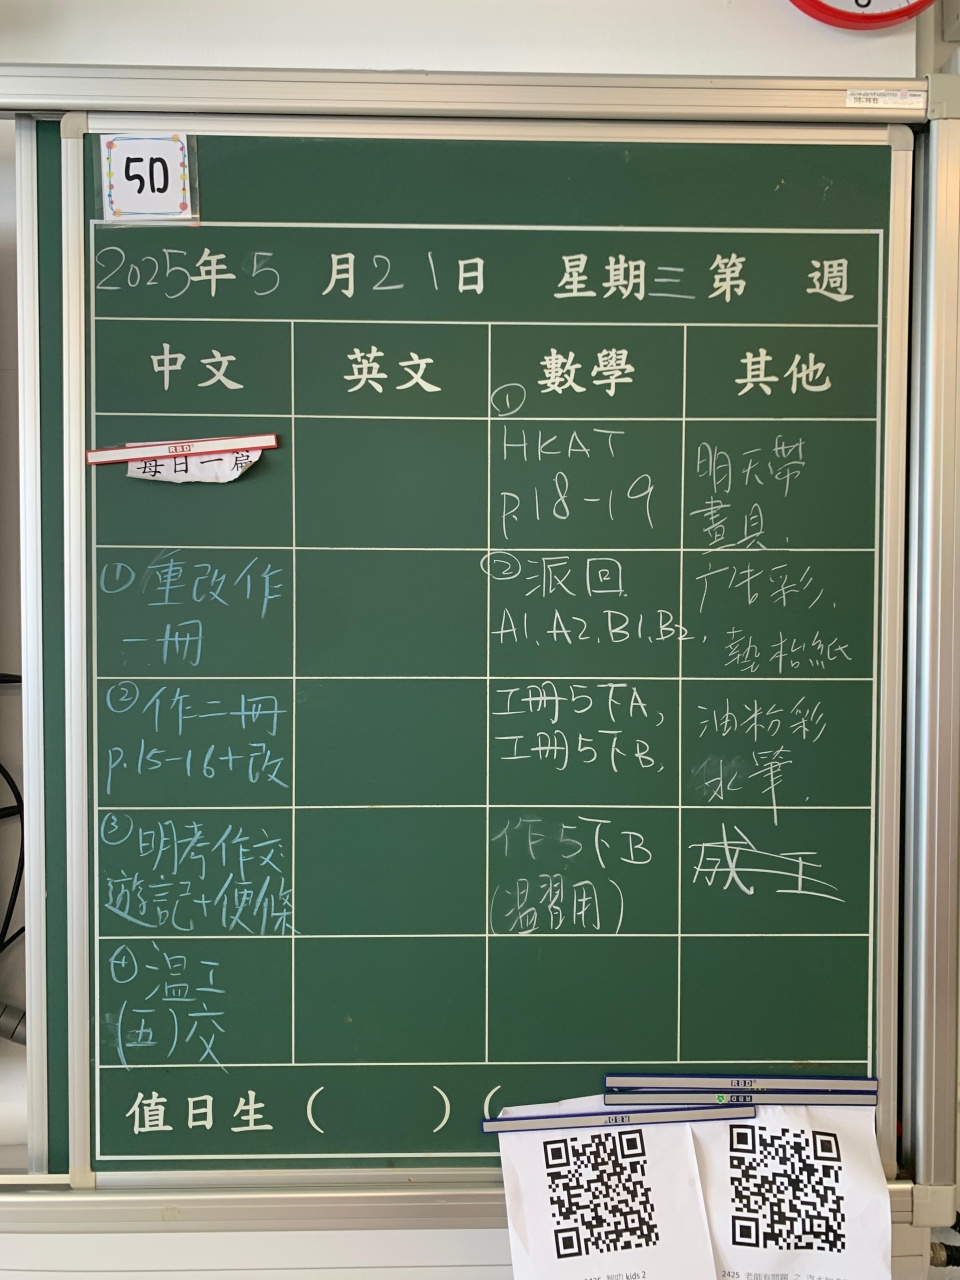 5D
2025年5月21日 星期三 第 週
中文 英文 數學 其他
RBD
每日一篇
① 重改作
一冊
② 作二冊
p.15-16+改
③ 明考作交
遊記+便條
④ 溫工
(五)交
①
HKAT
p.18-19
② 派回
A1, A2, B1, B2,
工冊5下A,
工冊5下B,
作5下B
(溫習用)
明天帶
畫具.
广告彩.
油粉彩
水筆.
成工
值日生( )(
RBD
RBD
RBD
kids 2
2425 老師有問題 之